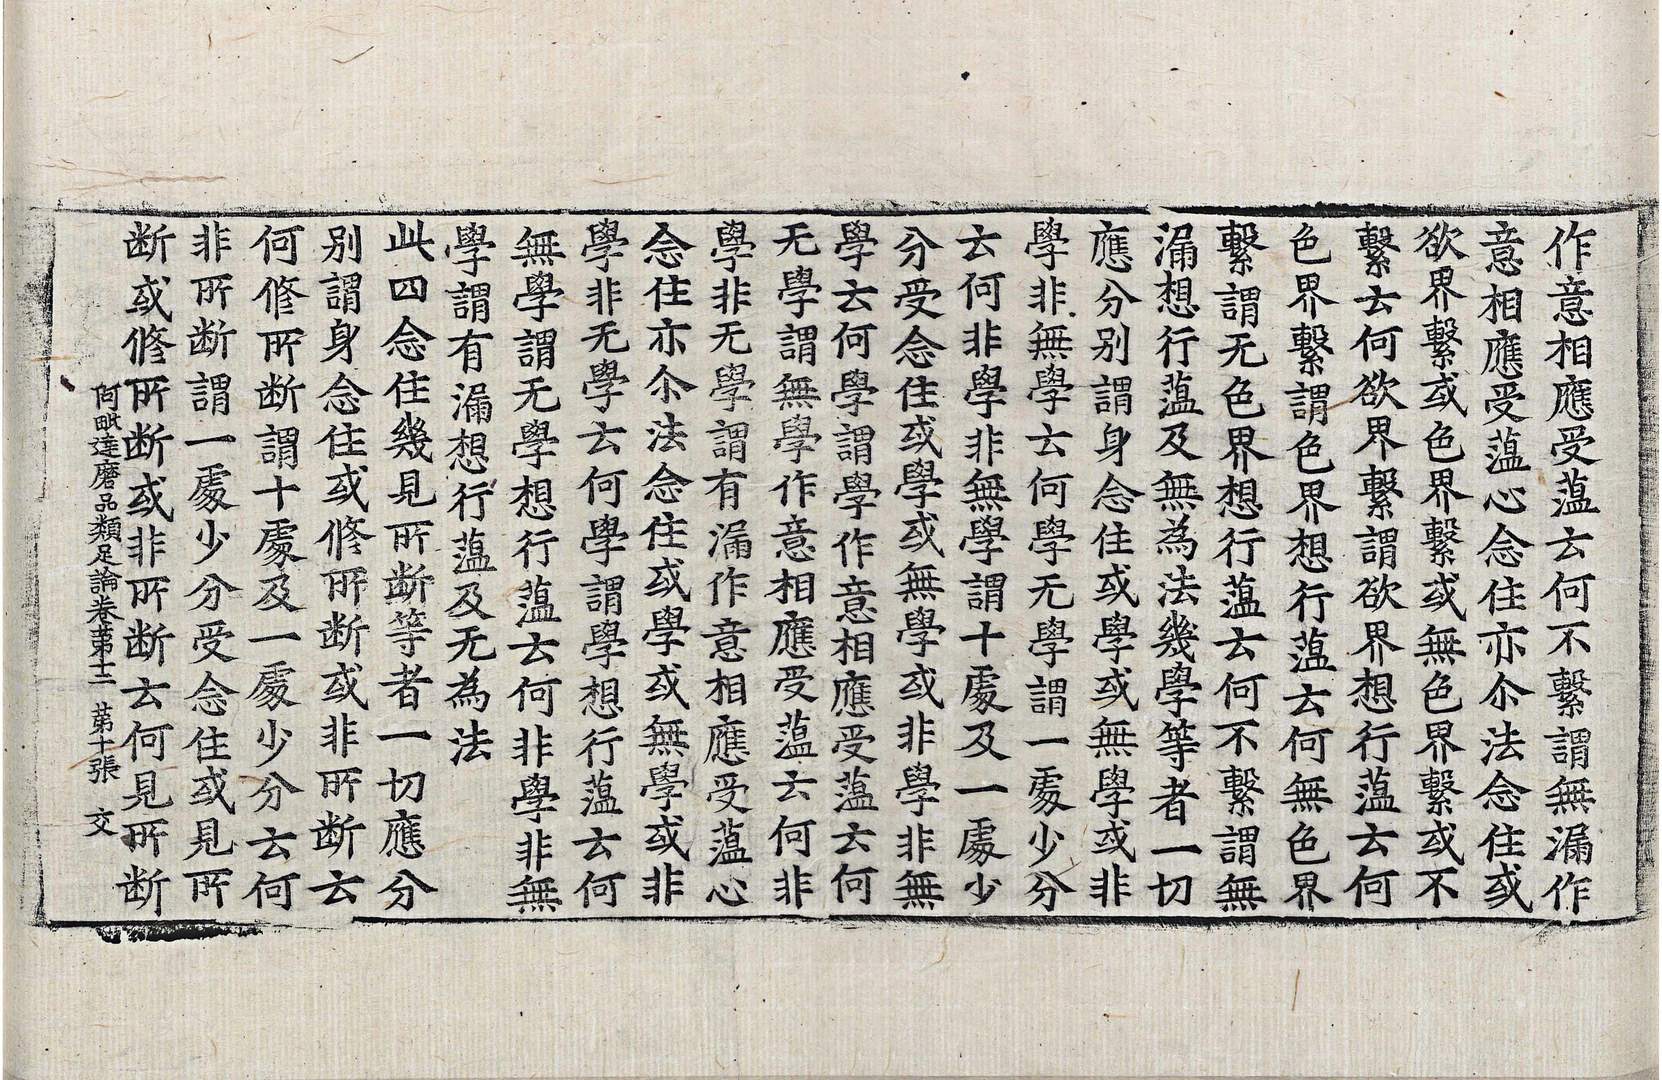 作意相應受蕰云何不繫謂無漏作
意相應受蕰心念住亦尒法念住或
欲界繫或色界繫或無色界繫或不
繫云何欲界繫謂欲界想行蕰云何
色界繫謂色界想行蕰云何無色界
繫謂无色界想行蕰云何不繫謂無
漏想行蕰及無為法幾學等者一切
應分别謂身念住或學或無學或非
學非無學云何學无學謂一處少分
云何非學非無學謂十處及一處少
分受念住或學或無學或非學非無
學云何學謂學作意相應受蕰云何
无學謂無學作意相應受蕰云何非
學非无學謂有漏作意相應受蕰心
念住亦尒法念住或學或無學或非
學非无學云何學謂學想行蕰云何
無學謂无學想行蕰云何非學非無
學謂有漏想行蕰及无為法
此四念住幾見所断等者一切應分
别謂身念住或修所断或非所断云
何修所断謂十處及一處少分云何
非所断謂一處少分受念住或見所
断或修所断或非所断云何見所断
阿毗達磨品類足論卷第十二 第十張 交